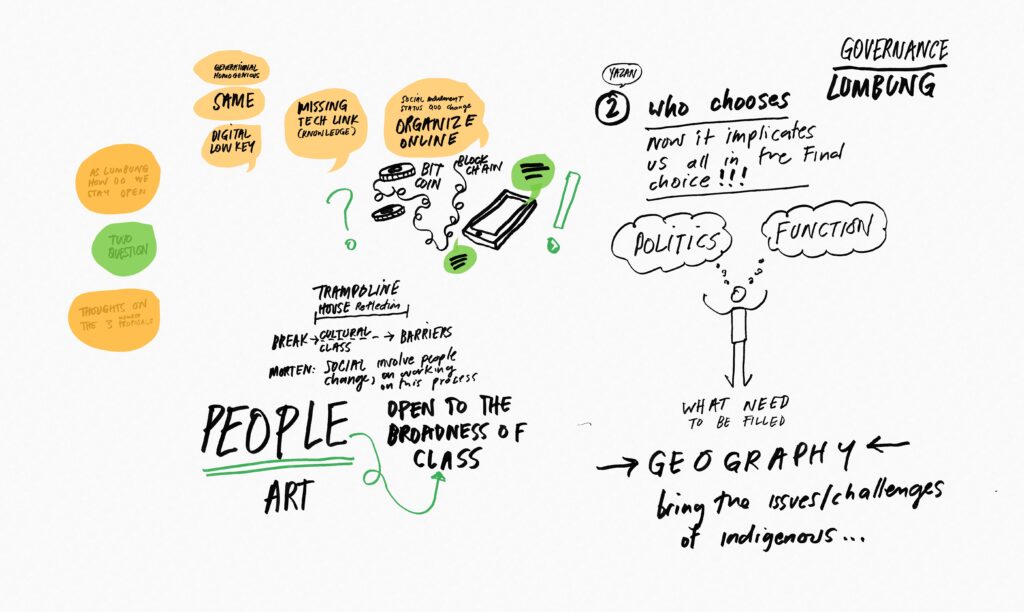 GENERATIONAL
HOMOGENIOUS
SAME
DIGITAL
LOW KEY
MISSING
TECH LINK
(KNOWLEDGE)
SOCIAL MOVEMENT
STATUS QUO change
ORGANIZE
ONLINE
BIT
COIN
BLOCK
CHAIN
?
!
AS LUMBUNG
HOW DO WE
STAY OPEN
TWO
QUESTION
THOUGHTS ON
THE 3 MEMBER
PROPOSALS
TRAMPOLINE
HOUSE Reflection
BREAK → CULTURAL --→ BARRIERS
CLASS
MORTEN: SOCIAL involve people
change, on working
on this process
PEOPLE
ART
OPEN TO THE
BROADNESS OF
CLASS
GOVERNANCE
LUMBUNG
YAZAN
2 who chooses
now it implicates
us all in the Final
choice!!!
POLITICS
FUNCTION
WHAT NEED
TO BE FILLED
→ GEOGRAPHY ←
bring the issues/challenges
of indigenous...